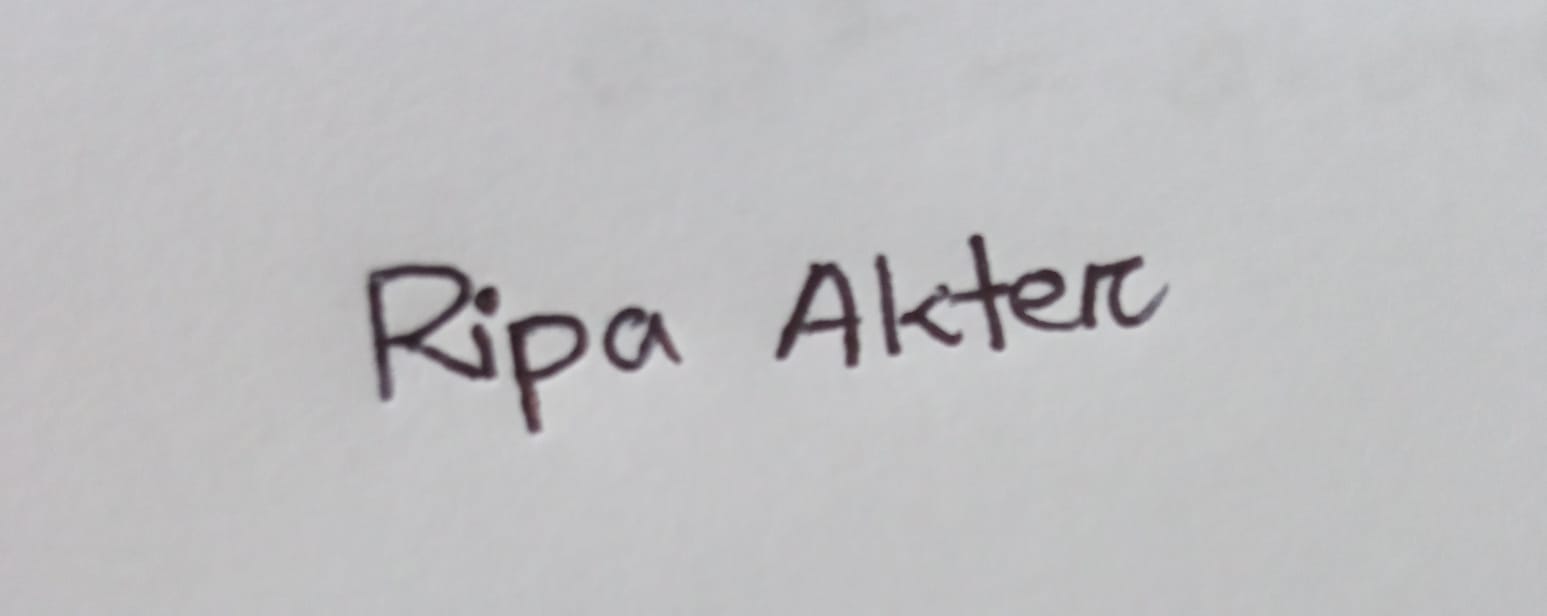 Ripa Akter